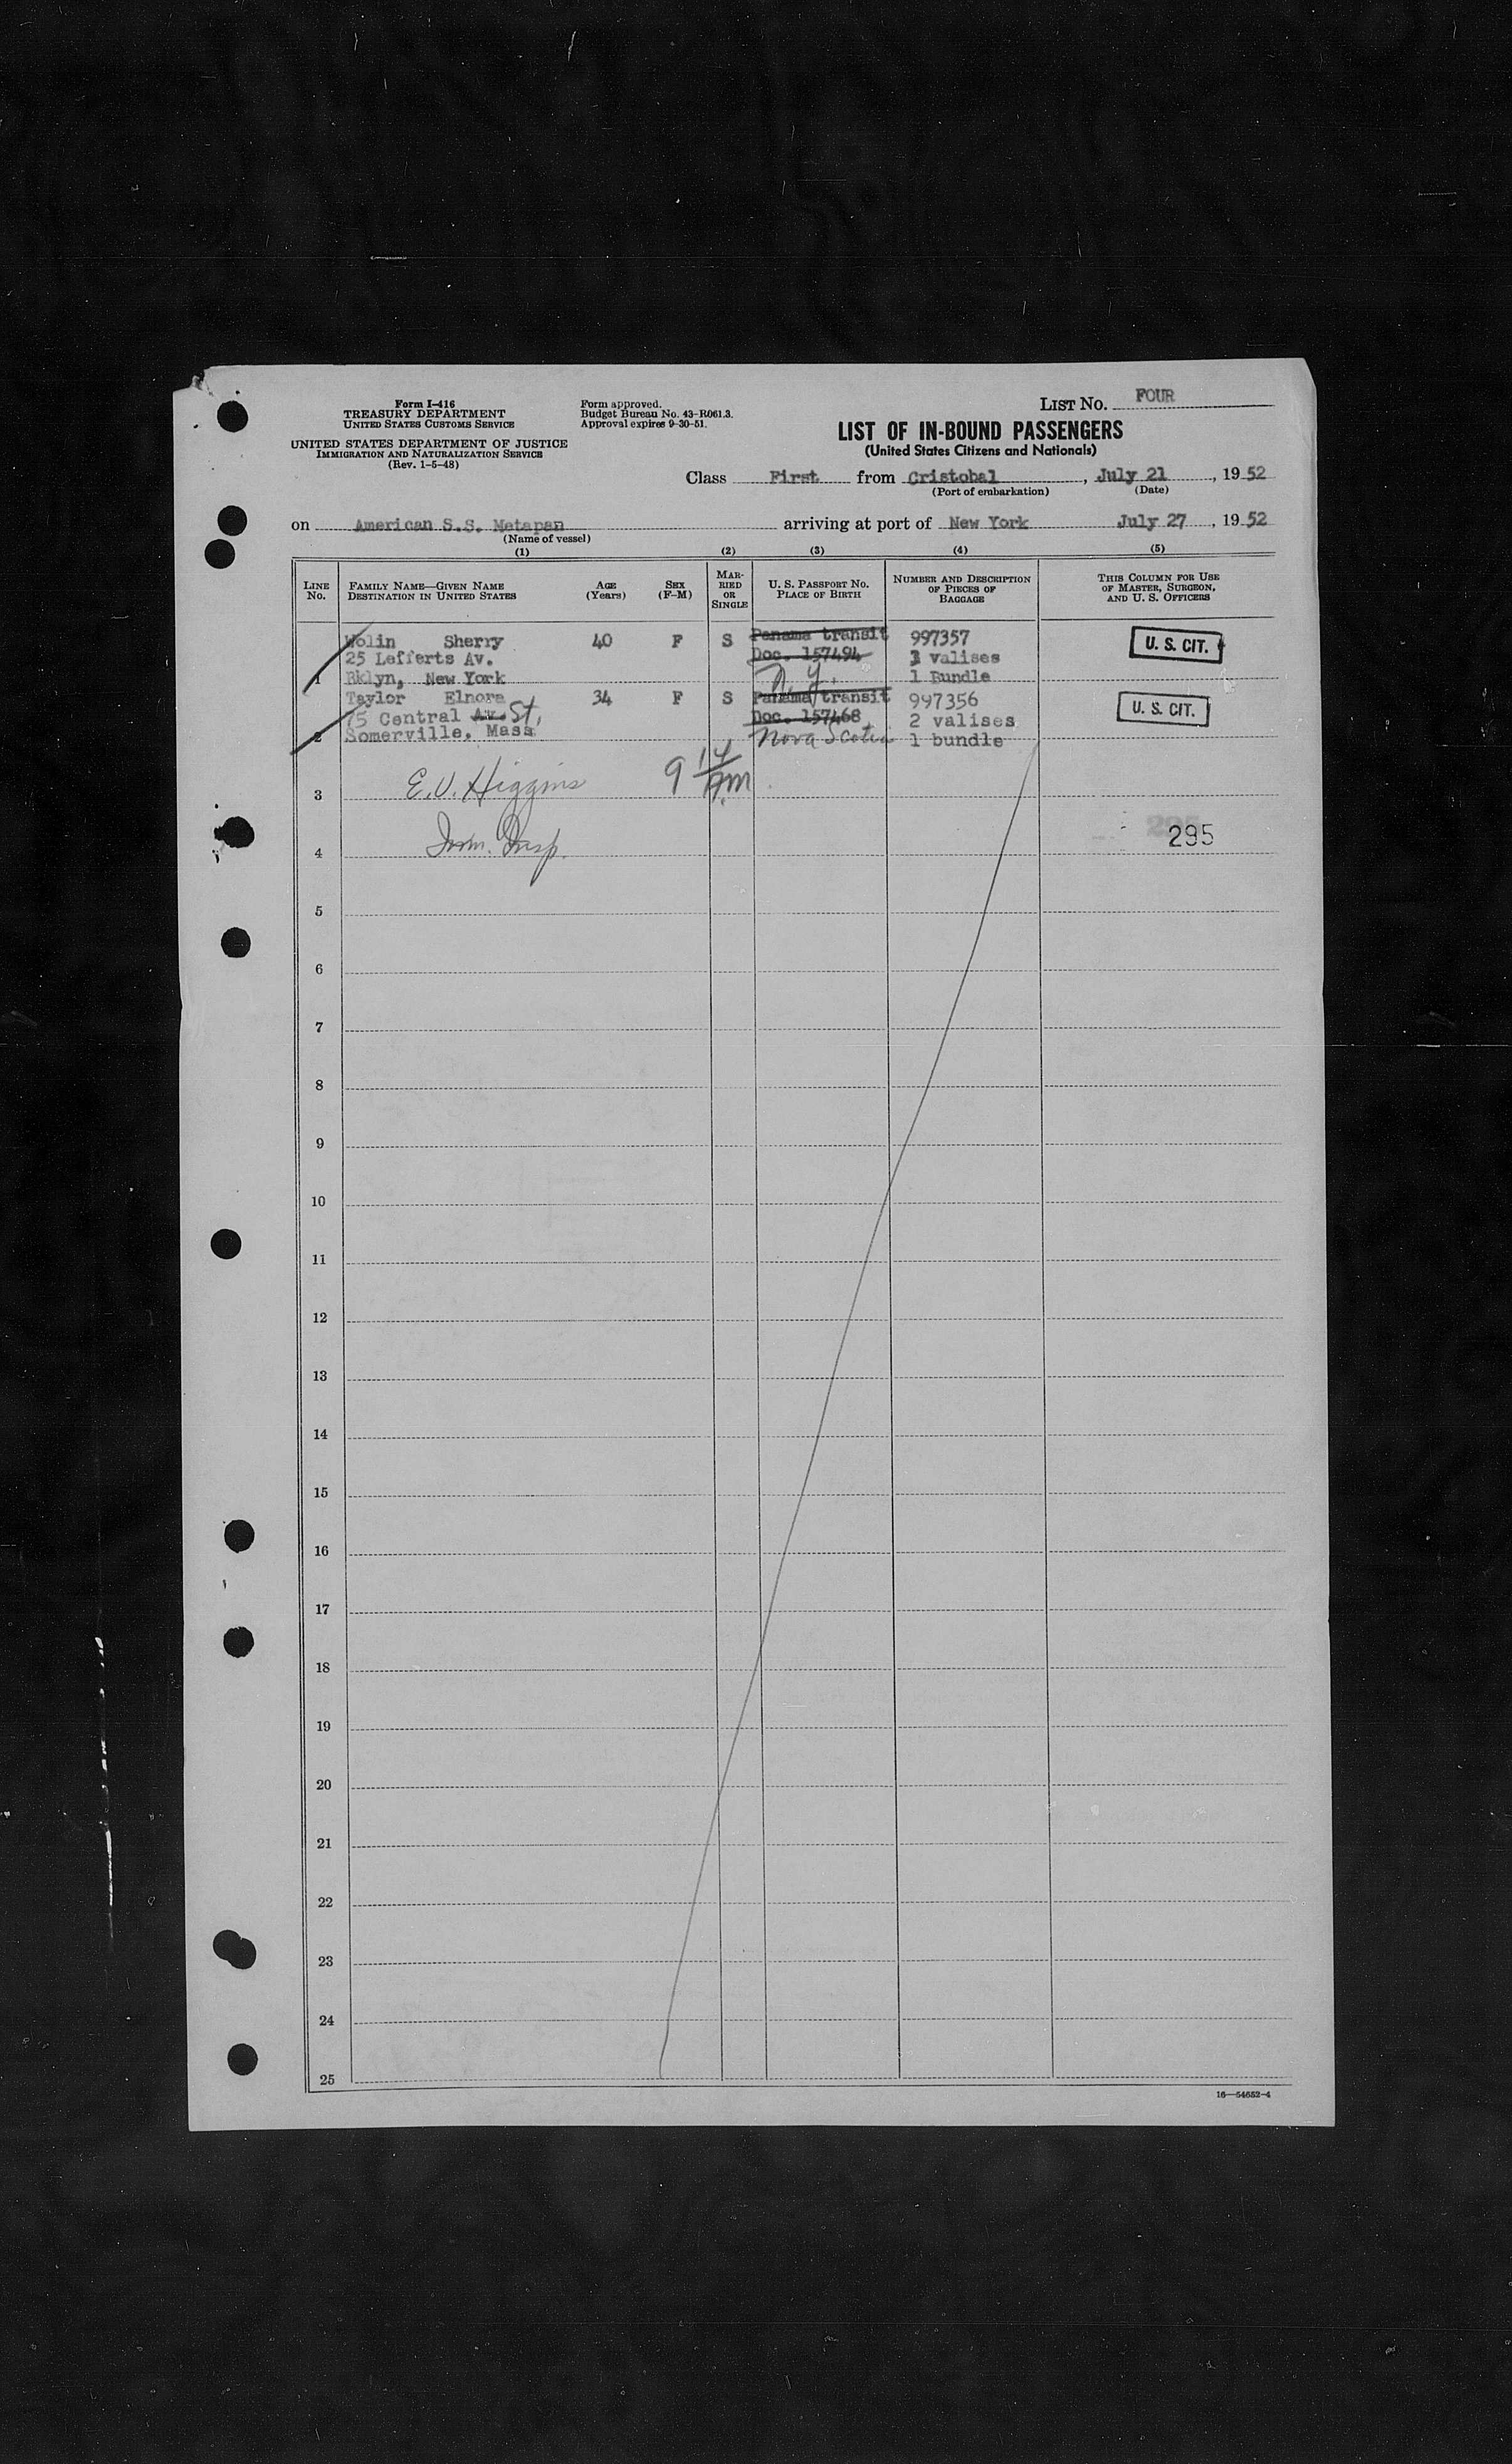 Form I-416
TREASURY DEPARTMENT
UNITED STATES CUSTOMS SERVICE
UNITED STATES DEPARTMENT OF JUSTICE
IMMIGRATION AND NATURALIZATION SERVICE
(Rev. 1-5-48)
Form approved.
Budget Bureau No. 43-R061.3.
Approval expires 9-30-51.
LIST NO. FOUR
LIST OF IN-BOUND PASSENGERS
(United States Citizens and Nationals)
Class First from Cristobal, July 21, 19 52
(Port of embarkation) (Date)
on American S.S. Metapan arriving at port of New York July 27, 19 52
(Name of vessel)
(1) (2) (3) (4) (5)
LINE NO. FAMILY NAME—GIVEN NAME DESTINATION IN UNITED STATES AGE (Years) SEX (F-M) MARRIED OR SINGLE U. S. PASSPORT NO. PLACE OF BIRTH NUMBER AND DESCRIPTION OF PIECES OF BAGGAGE THIS COLUMN FOR USE OF MASTER, SURGEON, AND U. S. OFFICERS
Wolin Sherry 40 F S Panama transit 997357 U. S. CIT.
25 Lefferts Av. Doc. 157494 3 valises
1 Bklyn, New York N.Y. 1 Bundle
Taylor Elnora 34 F S Panama transit 997356 U. S. CIT.
75 Central Av. St. Doc. 157468 2 valises
2 Somerville, Mass Nova Scotia 1 bundle
3 E.V. Higgins 9 14 AM
4 Imm. Insp. 295
5
6
7
8
9
10
11
12
13
14
15
16
17
18
19
20
21
22
23
24
25
16—54652-4